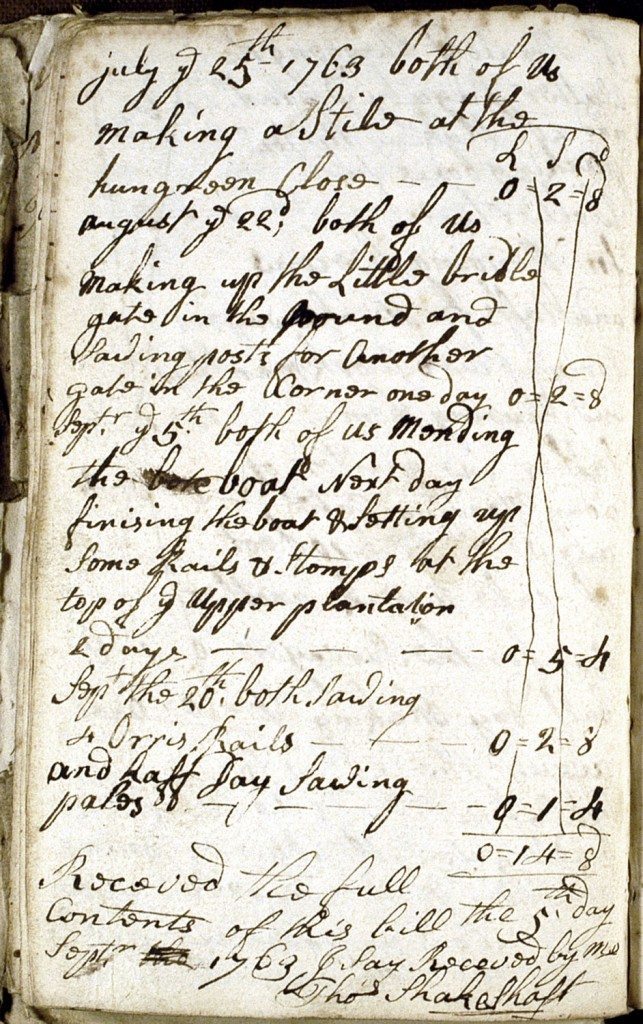 july ye 25th 1763 both of us
making a Stile at the
L S d
hungreen Close — — 0=2=8
august ye 22d, both of us
making up the Little bridle
gate in the ground and
Sawing posts for another
gate in the Corner one day 0=2=8
Septr ye 5th both of us Mending
the boat Next day
finising the boat & Setting up
Some Rails & Stomps at the
top of ye Upper plantation
2 days — — — 0=5=4
Sept the 20th both Sawing
4 Orris Rails — — — 0=2=8
and haff Day Sawing
pales — — — — 0=1=4
0=14=8
Receved the full
Contents of this bill the 5th day
Septr the 1763 I Say Receved by me
Thos Shakeshaft